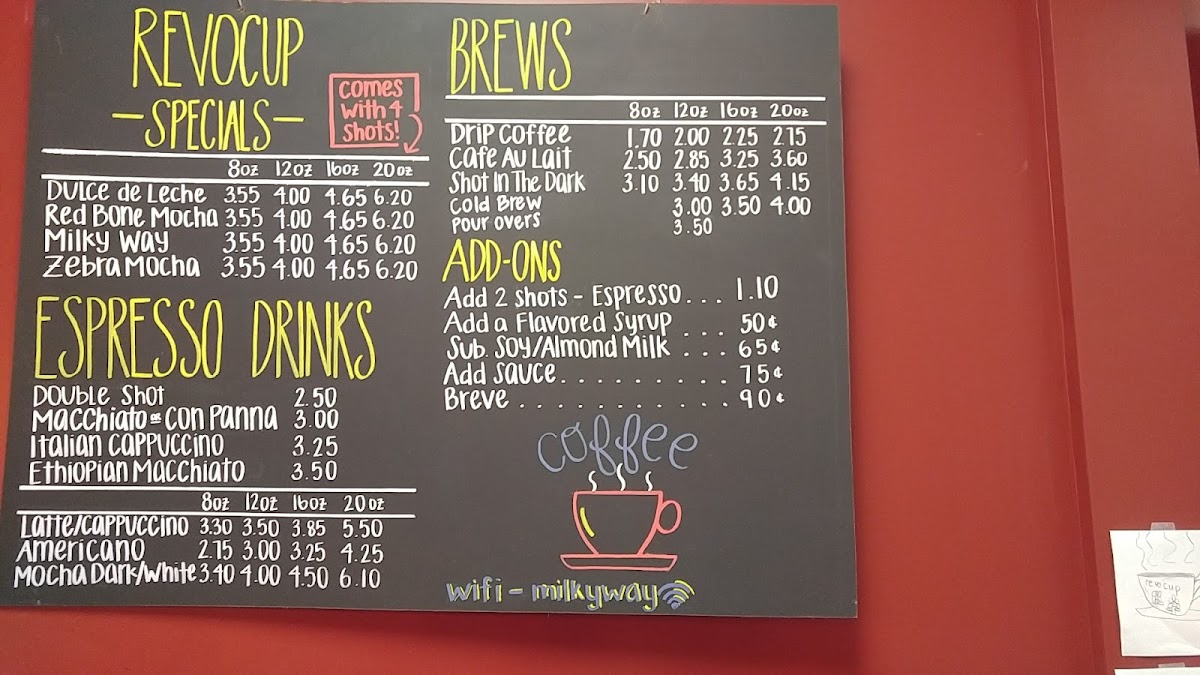 REVOCUP
-SPECIALS-
comes
with 4
shots!
8oz 12oz 16oz 20oz
Dulce de Leche 3.55 4.00 4.65 6.20
Red Bone Mocha 3.55 4.00 4.65 6.20
Milky Way 3.55 4.00 4.65 6.20
Zebra Mocha 3.55 4.00 4.65 6.20
ESPRESSO DRINKS
Double Shot 2.50
Macchiato or Con Panna 3.00
Italian Cappuccino 3.25
Ethiopian Macchiato 3.50
8oz 12oz 16oz 20oz
Latte/Cappuccino 3.30 3.50 3.85 5.50
Americano 2.75 3.00 3.25 4.25
Mocha Dark/White 3.40 4.00 4.50 6.10
BREWS
8oz 12oz 16oz 20oz
Drip Coffee 1.70 2.00 2.25 2.75
Cafe Au Lait 2.50 2.85 3.25 3.60
Shot In The Dark 3.10 3.40 3.65 4.15
Cold Brew 3.00 3.50 4.00
Pour Overs 3.50
ADD-ONS
Add 2 shots - Espresso... 1.10
Add a Flavored Syrup ... 50¢
Sub. Soy/Almond Milk ... 65¢
Add Sauce......... 75¢
Breve ........... 90¢
coffee
wifi - milkyway
revocup